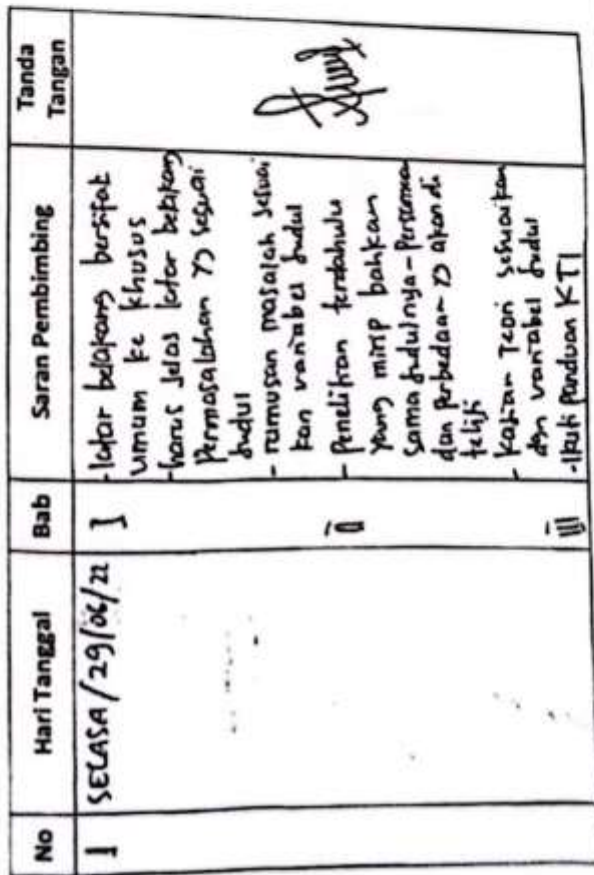 No Hari Tanggal Bab Saran Pembimbing Tanda Tangan
1 SELASA / 29/06/22 I - latar belakang bersifat
umum ke khusus
- harus jelas latar belakang
permasalahan yg sesuai
Judul
- rumusan masalah sesuai
kan variabel Judul
II - Penelitian terdahulu
yang mirip bahkan
sama Judulnya - Persamaan
dan perbedaan yg akan di
teliti
- Kajian Teori sesuaikan
dgn variabel Judul
III - Ikuti panduan KTI